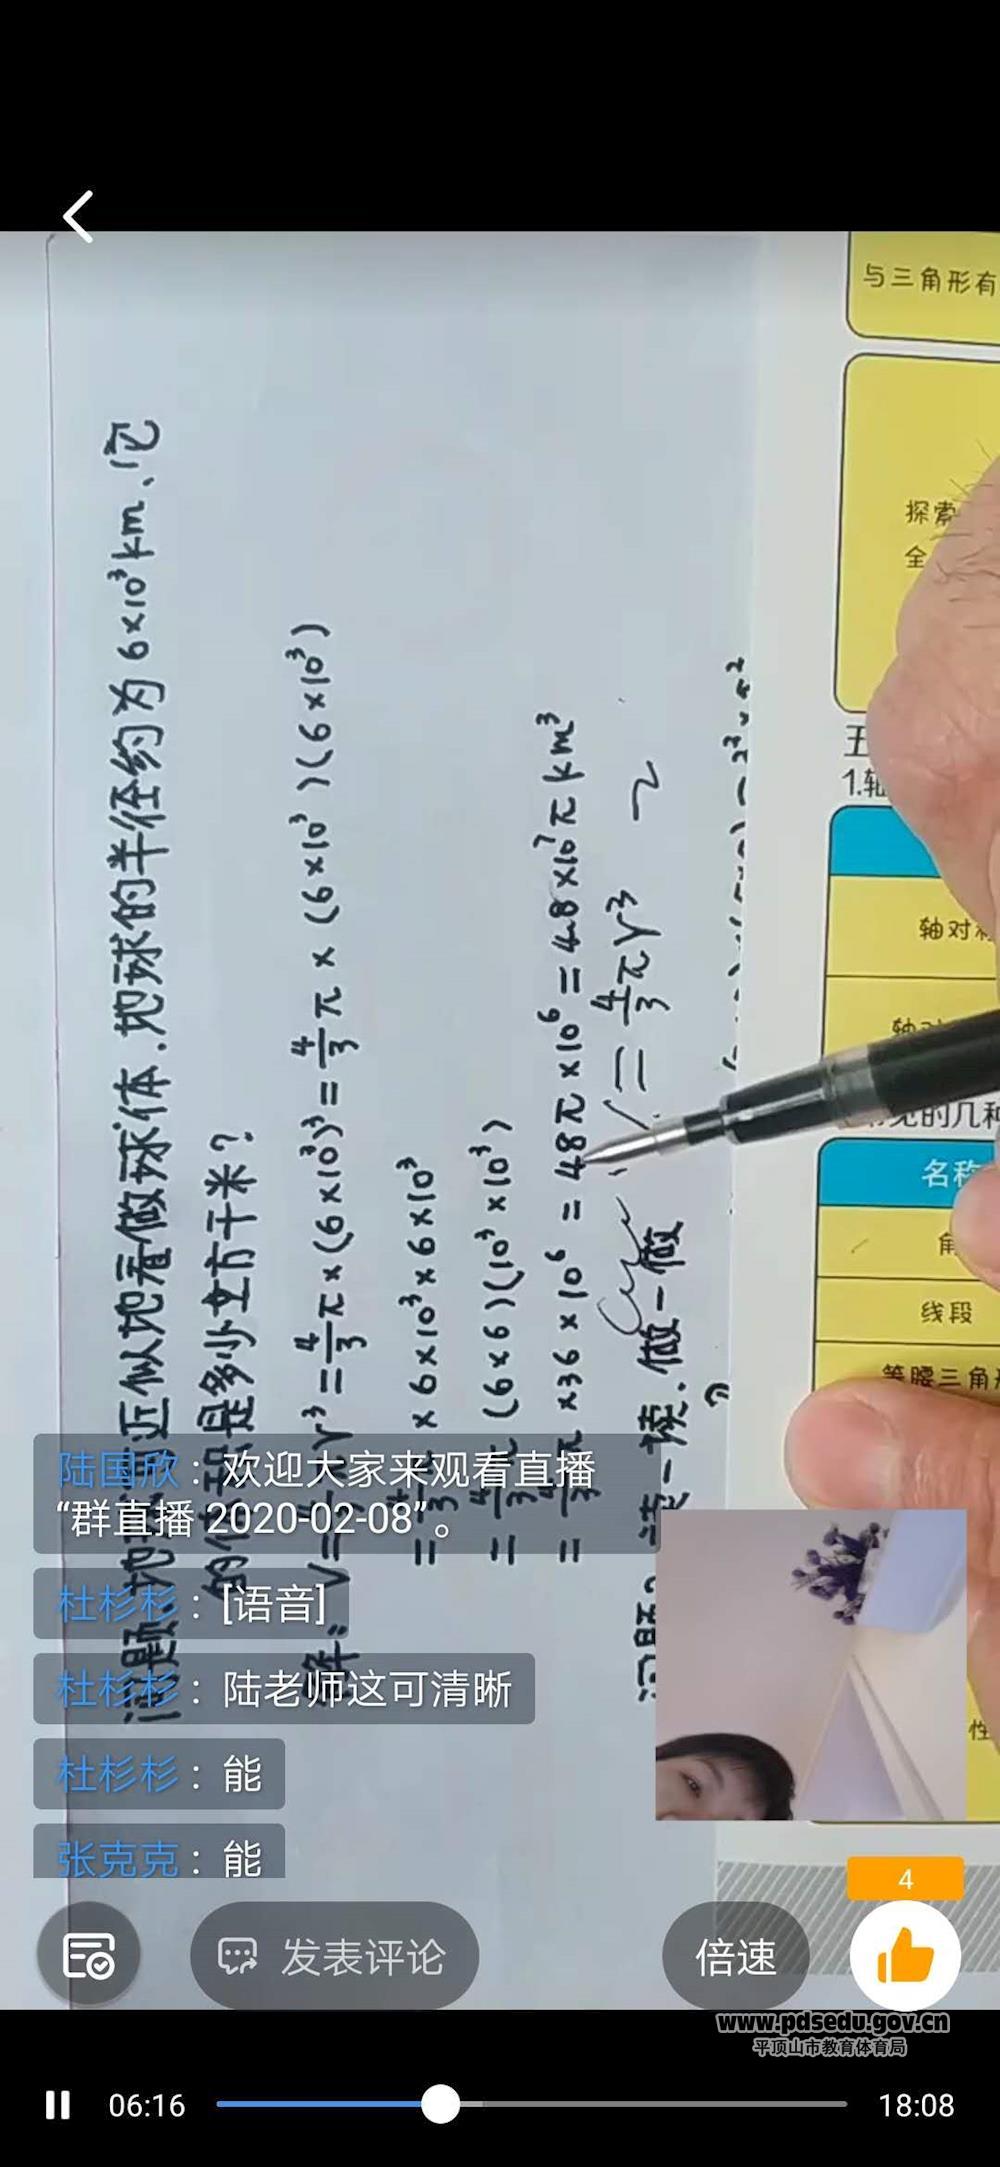 问题1、地球可近似地看做球体.地球的半径约为6×10³km、它
的体积是多少立方千米?
解: V=4/3πr³=4/3π×(6×10³)³=4/3π×(6×10³)(6×10³)
=4/3 × 6×10³×6×10³
=4/3π(6×6)(10³×10³)
=4/3π×36×10⁶=48π×10⁶=4.8×10⁷πkm³
V=4/3πr³
问题2 读一读.做一做
与三角形有
探索
全
1.轴
轴对称
轴对
见的几种
名称
角
线段
等腰三角形
性
陆国欣：欢迎大家来观看直播
“群直播 2020-02-08”。
杜杉杉：[语音]
杜杉杉：陆老师这可清晰
杜杉杉：能
张克克：能
发表评论
倍速
4
www.pdsedu.gov.cn
平顶山市教育体育局
06:16
18:08